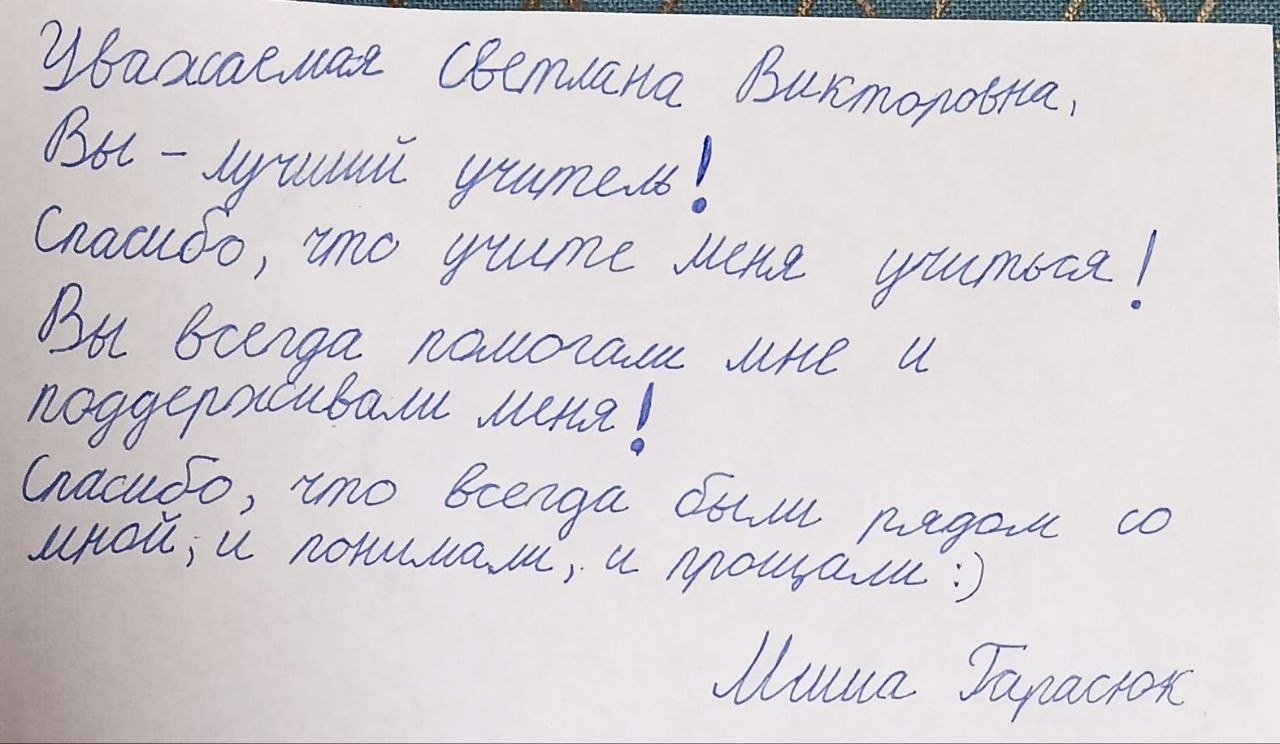 Уважаемая Светлана Викторовна,
Вы - лучший учитель!
Спасибо, что учите меня учиться!
Вы всегда помогали мне и
поддерживали меня!
Спасибо, что всегда были рядом со
мной, и понимали, и прощали :)
Миша Гарасюк